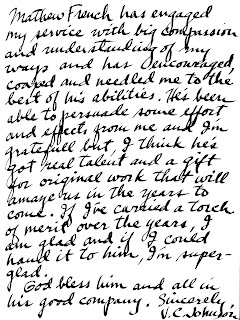 Mathew French has engaged
my service with big compassion
and understanding of my
ways and has encouraged,
coaxed and needled me to the
best of his abilities. He's been
able to persuade some effort
and effects from me and I'm
gratefull but, I think he's
got real talent and a gift
for original work that will
amaze us in the years to
come. If I've carried a torch
of merit over the years, I
am glad and if I could
hand it to him, I'm super-
glad.
God bless him and all in
his good company. Sincerely,
V.C. Johnson